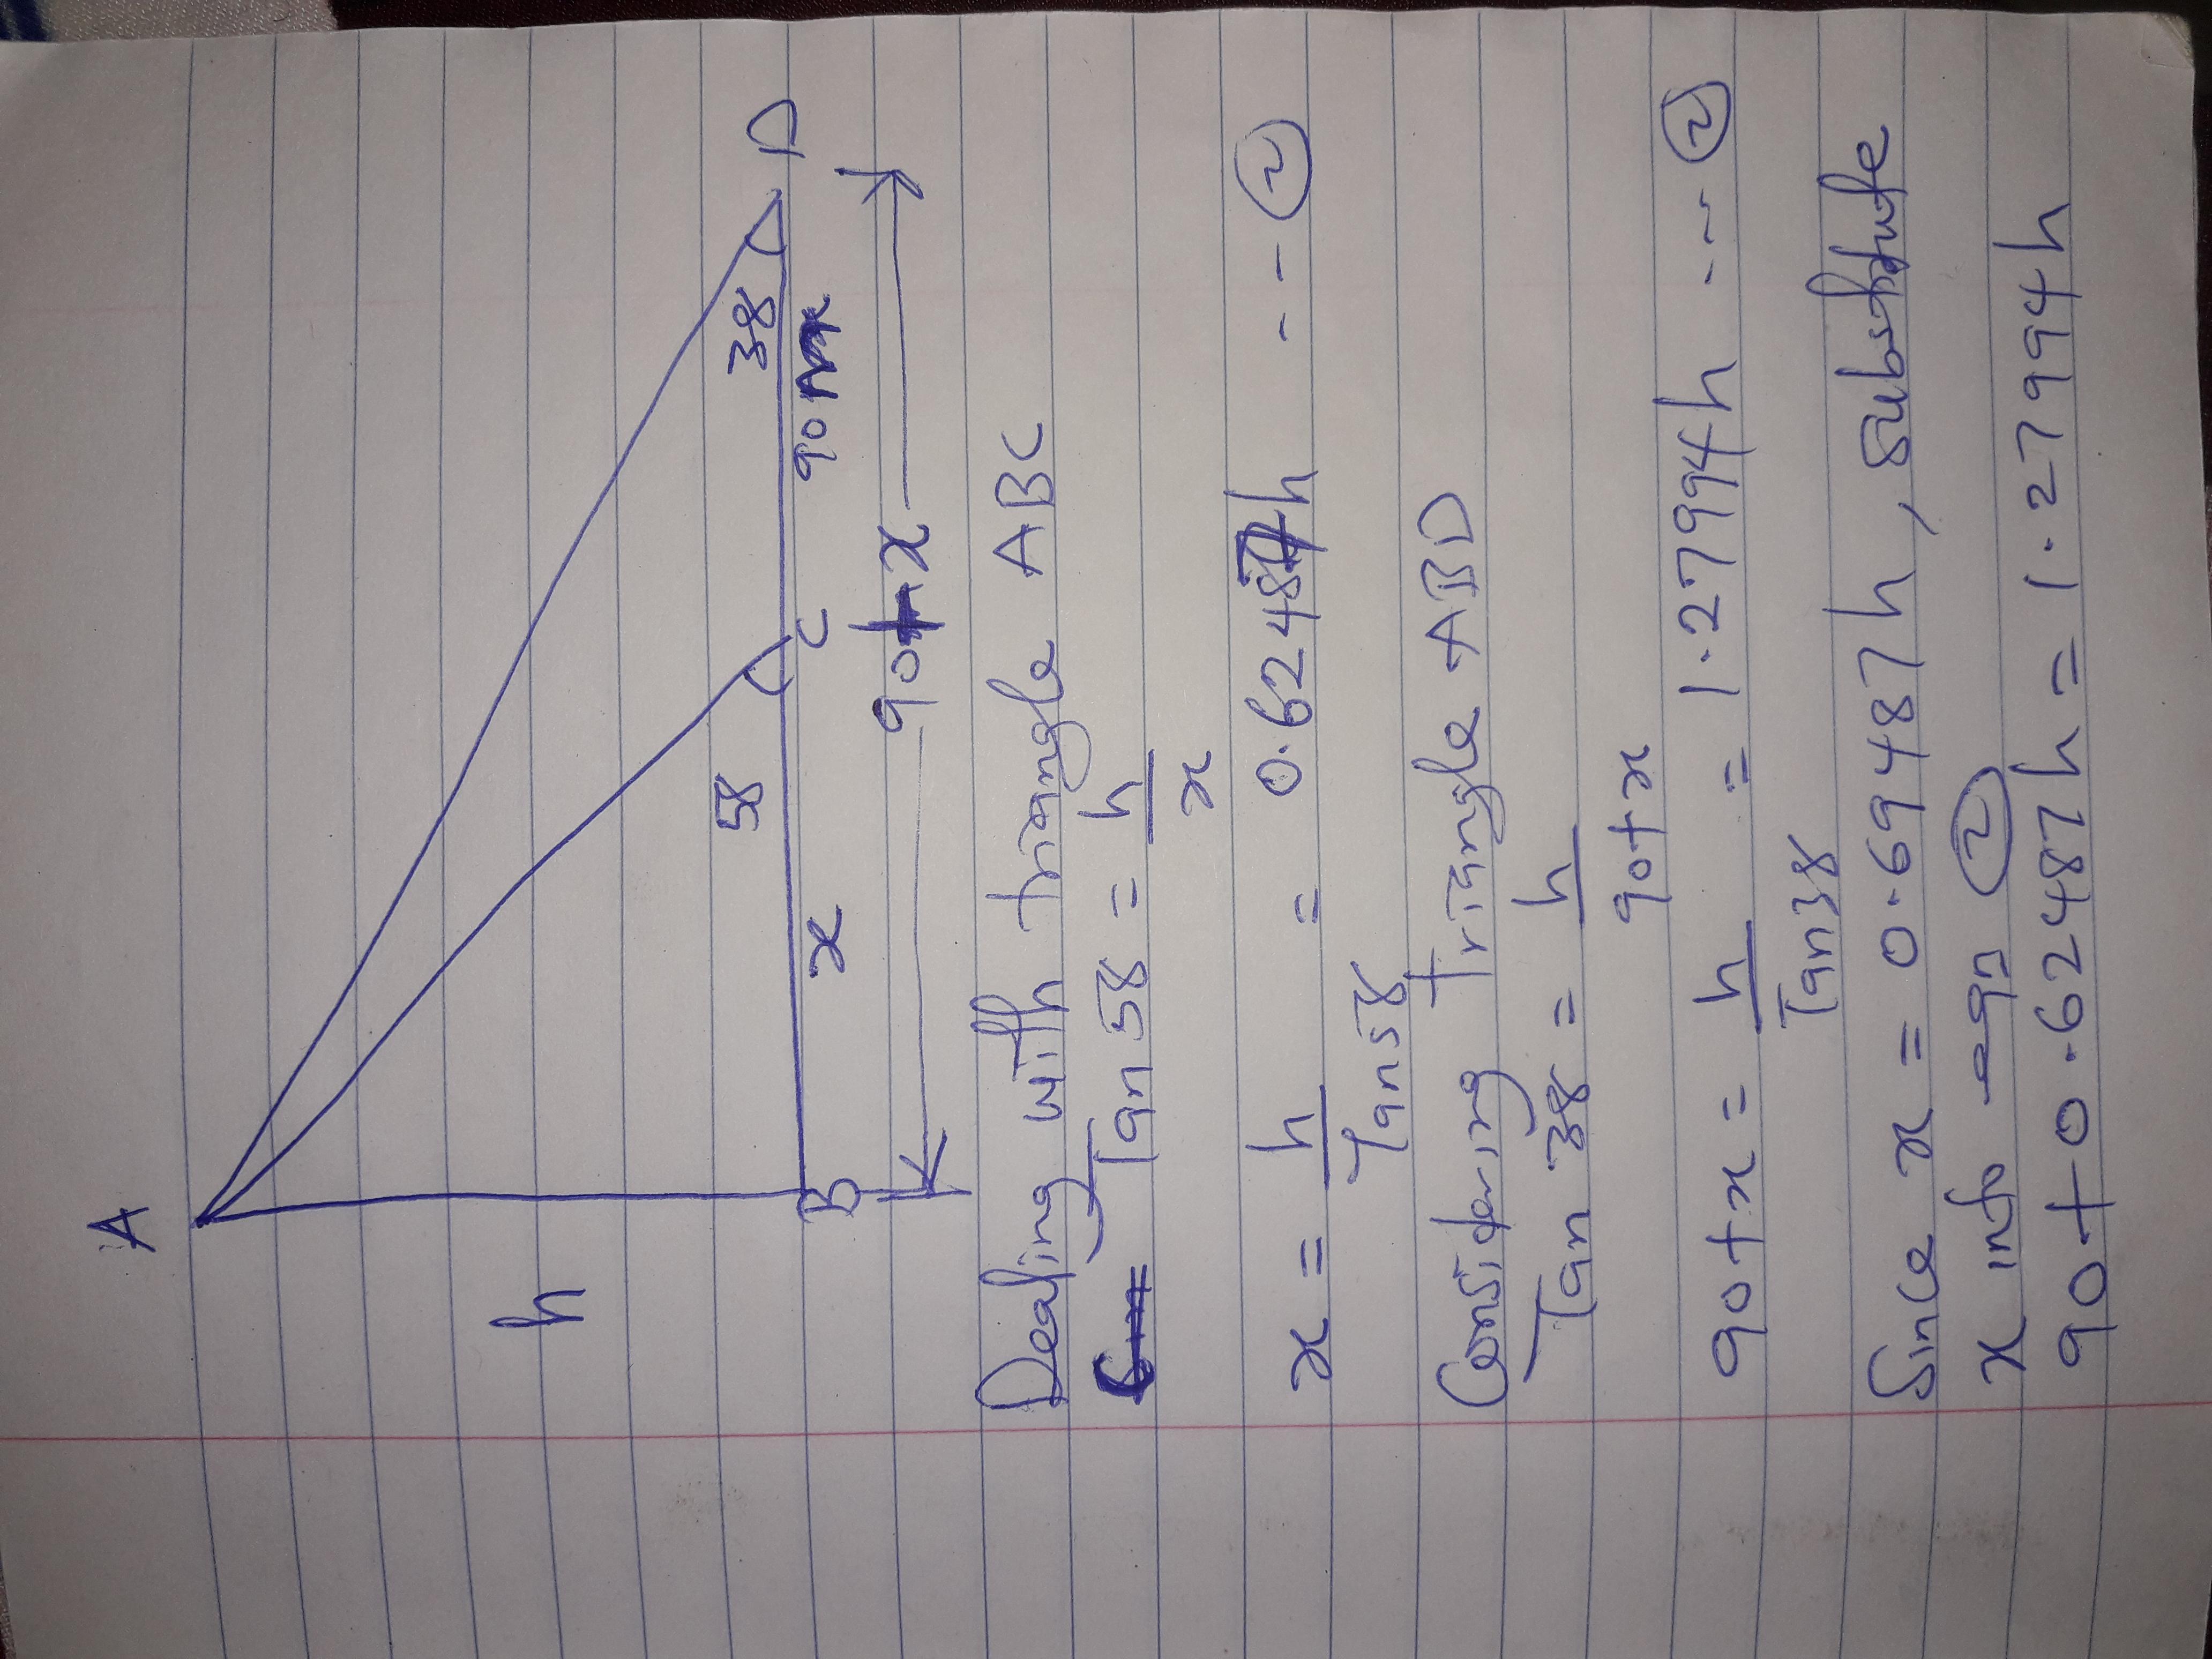 A
h
58
38
B
x
C
90m
D
90+x
Dealing with triangle ABC
Tan 58 = h/x
x = h/Tan58 = 0.62487h --- 2
Considering triangle ABD
Tan 38 = h/90+x
90+x = h/Tan38 = 1.27994h --- 2
Since x = 0.69487h, substitute
x into eqn 2
90+0.62487h = 1.27994h